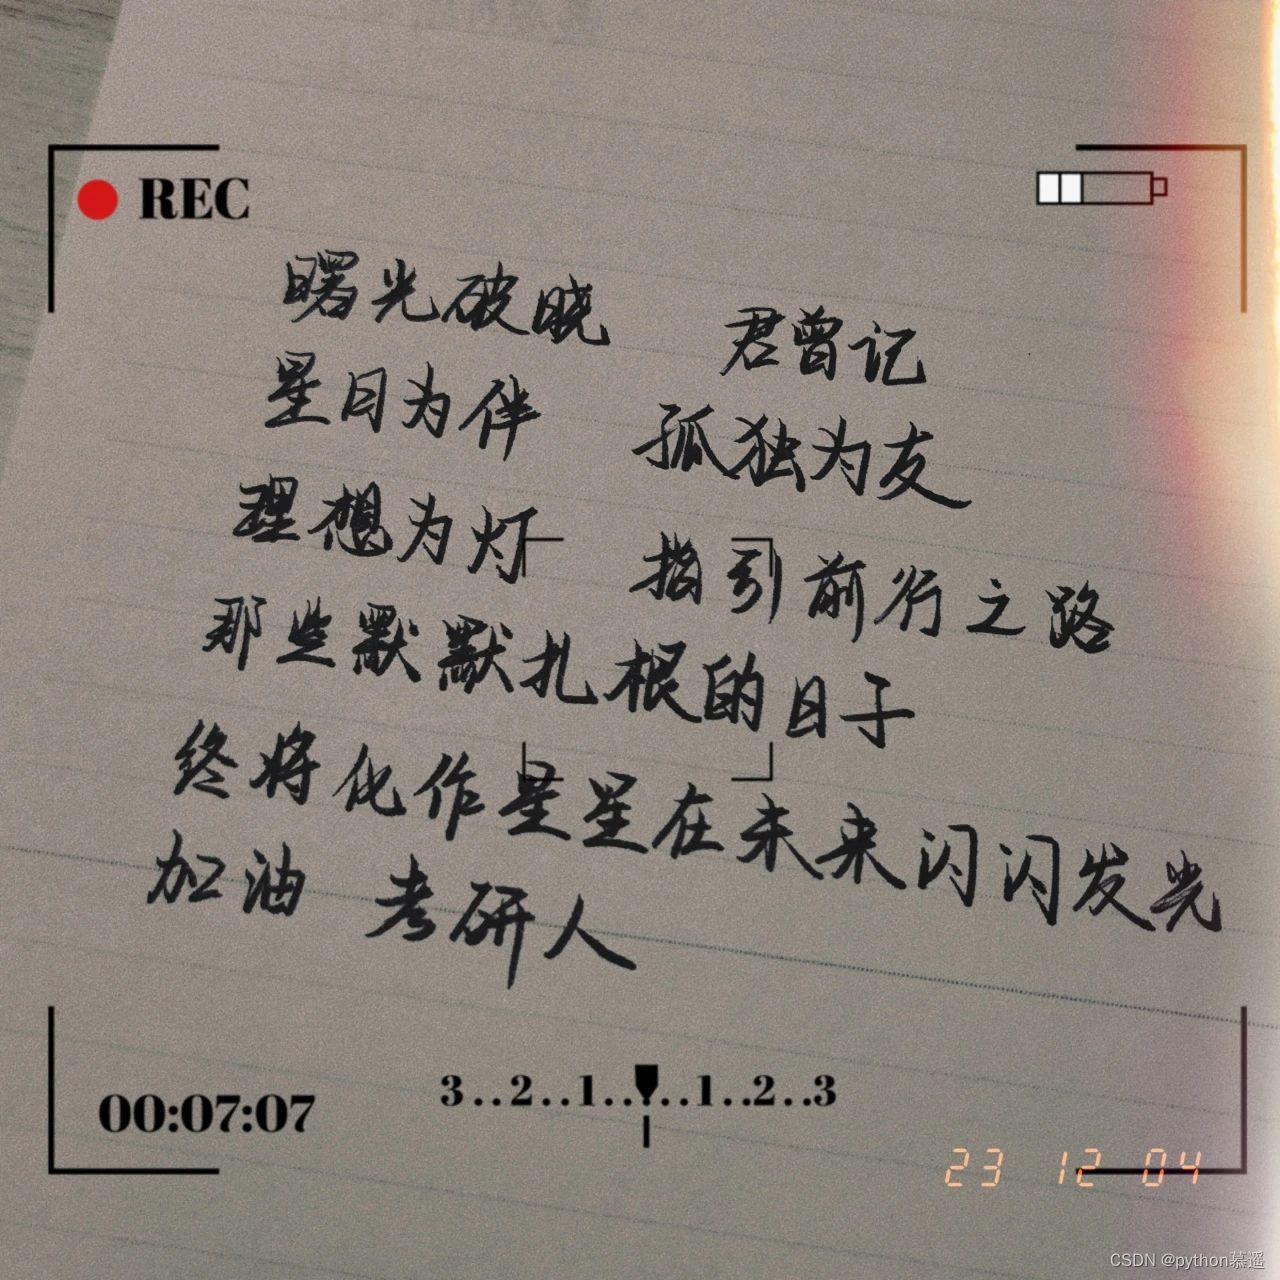 REC
曙光破晓 君曾记
星日为伴 孤独为友
理想为灯 指引前行之路
那些默默扎根的日子
终将化作星星在未来闪闪发光
加油 考研人
00:07:07
3..2..1.....1..2..3
23 12 04
CSDN @python慕遥